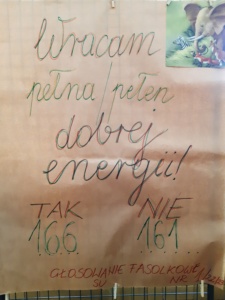 Wracam
pełna/pełen
dobrej
energii!
TAK NIE
166 161
GŁOSOWANIE FASOLKOWE